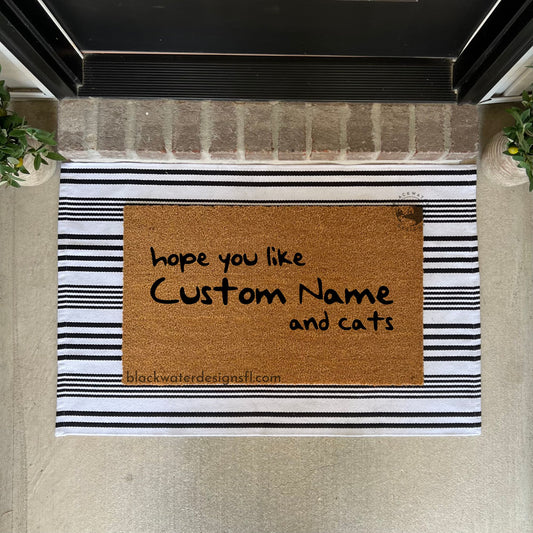 hope you like
Custom Name
and cats
blackwaterdesignsfl.com